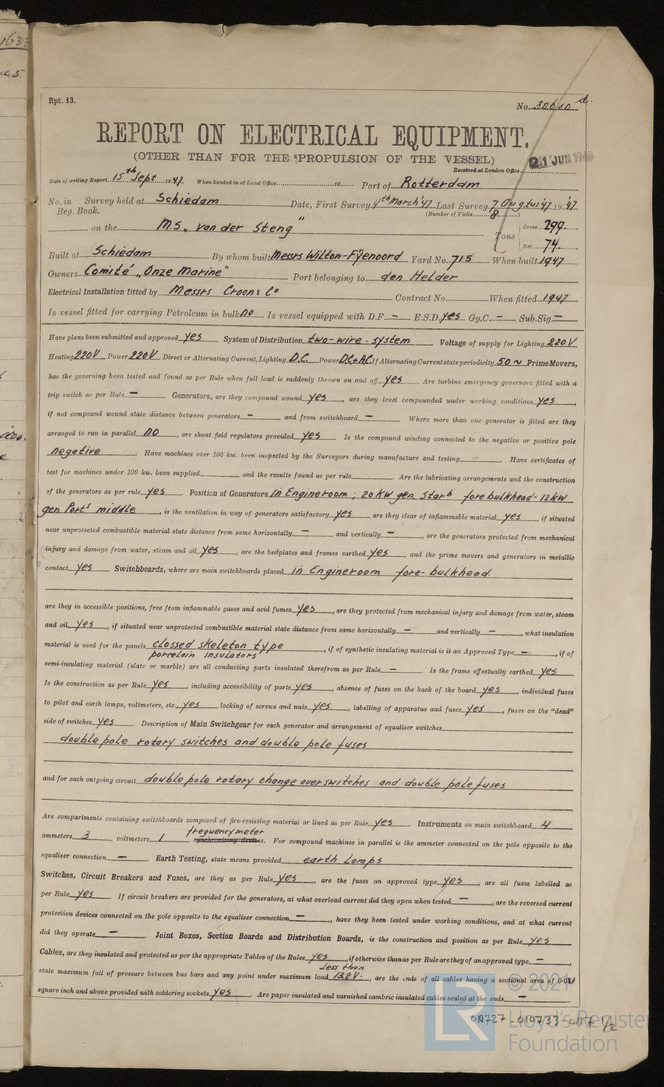 Rpt. 13.
No.
REPORT ON ELECTRICAL EQUIPMENT.
(OTHER THAN FOR THE PROPULSION OF THE VESSEL)
Received at London Office
21 JUN 1948
Date of writing Report 15th Sept 1947. When handed in at Local Office 19 Port of Rotterdam
No. in Survey held at Schiedam Date, First Survey 4th March '47 Last Survey 7 Augtus '47 1947
Reg. Book. (Number of Visits 8
on the M.S. „van der Steng" Tons Gross 299. Net 74.
Built at Schiedam By whom built Messrs Wilton-Fÿenoord Yard No. 715 When built 1947
Owners Comité „Onze Marine" Port belonging to den Helder
Electrical Installation fitted by Messrs Croon & Co Contract No. When fitted 1947
Is vessel fitted for carrying Petroleum in bulk no Is vessel equipped with D.F. – E.S.D. yes Gy.C. – Sub.Sig –
Have plans been submitted and approved yes System of Distribution two-wire-system Voltage of supply for Lighting 220V
Heating 220V Power 220V Direct or Alternating Current, Lighting D.C. Power DC+AC If Alternating Current state periodicity 50~ Prime Movers,
has the governing been tested and found as per Rule when full load is suddenly thrown on and off yes Are turbine emergency governors fitted with a
trip switch as per Rule – Generators, are they compound wound yes, are they level compounded under working conditions yes,
if not compound wound state distance between generators – and from switchboard – Where more than one generator is fitted are they
arranged to run in parallel no, are shunt field regulators provided yes Is the compound winding connected to the negative or positive pole
negative. Have machines over 100 kw. been inspected by the Surveyors during manufacture and testing – Have certificates of
test for machines under 100 kw. been supplied and the results found as per rule Are the lubricating arrangements and the construction
of the generators as per rule yes Position of Generators in Engineroom; 20KW gen. Starb fore bulkhead-12KW
gen Ports middle, is the ventilation in way of generators satisfactory yes are they clear of inflammable material yes, if situated
near unprotected combustible material state distance from same horizontally – and vertically –, are the generators protected from mechanical
injury and damage from water, steam and oil yes, are the bedplates and frames earthed yes and the prime movers and generators in metallic
contact yes Switchboards, where are main switchboards placed in Engineroom fore-bulkhead
are they in accessible positions, free from inflammable gases and acid fumes yes, are they protected from mechanical injury and damage from water, steam
and oil yes, if situated near unprotected combustible material state distance from same horizontally – and vertically –, what insulation
material is used for the panels clossed skeleton type, if of synthetic insulating material is it an Approved Type –, if of
porcelain insulators
semi-insulating material (slate or marble) are all conducting parts insulated therefrom as per Rule – Is the frame effectually earthed yes
Is the construction as per Rule yes, including accessibility of parts yes, absence of fuses on the back of the board yes, individual fuses
to pilot and earth lamps, voltmeters, etc. yes locking of screws and nuts yes, labelling of apparatus and fuses yes, fuses on the "dead"
side of switches yes Description of Main Switchgear for each generator and arrangement of equaliser switches
double pole rotary switches and double pole fuses
and for each outgoing circuit double pole rotary change over switches and double pole fuses
Are compartments containing switchboards composed of fire-resisting material or lined as per Rule yes Instruments on main switchboard 4
frequencymeter
ammeters 3 voltmeters 1 synchronising devices. For compound machines in parallel is the ammeter connected on the pole opposite to the
equaliser connection – Earth Testing, state means provided earth lamps
Switches, Circuit Breakers and Fuses, are they as per Rule yes, are the fuses an approved type yes, are all fuses labelled as
per Rule yes If circuit breakers are provided for the generators, at what overload current did they open when tested –, are the reversed current
protection devices connected on the pole opposite to the equaliser connection –, have they been tested under working conditions, and at what current
did they operate – Joint Boxes, Section Boards and Distribution Boards, is the construction and position as per Rule yes
Cables, are they insulated and protected as per the appropriate Tables of the Rules yes, if otherwise than as per Rule are they of an approved type –,
less than
state maximum fall of pressure between bus bars and any point under maximum load 13.2V., are the ends of all cables having a sectional area of 0.04
square inch and above provided with soldering sockets yes Are paper insulated and varnished cambric insulated cables sealed at the ends –
© 2021
LR
Lloyd's Register
Foundation
010727-010733-0117 1/2